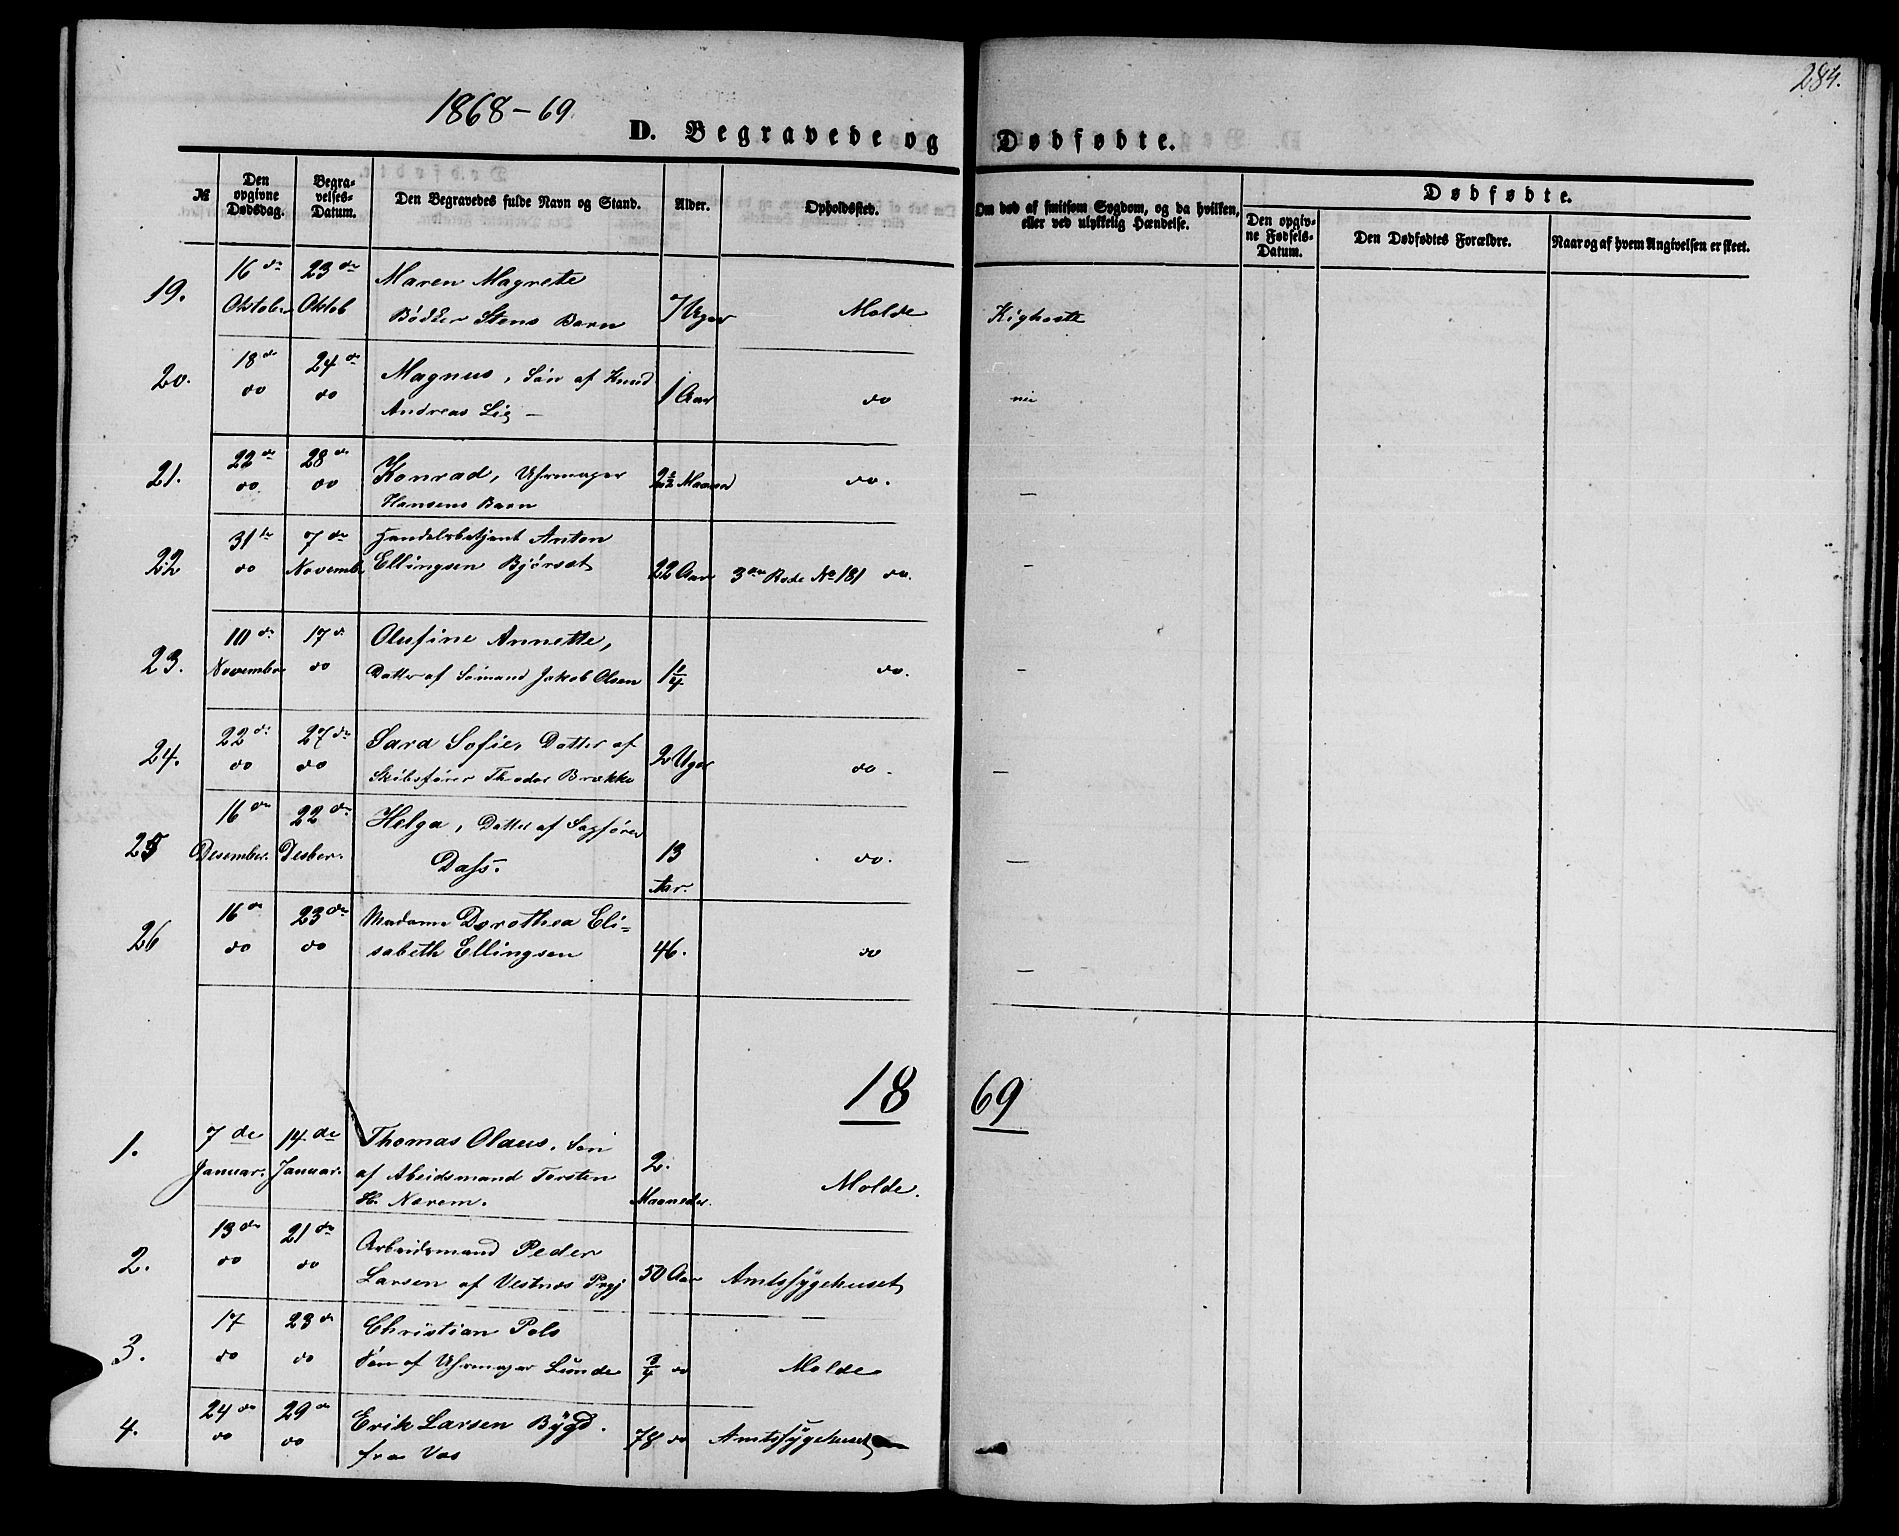 284.
1868-69.
D. Begravede og Dødfødte.
№
Den opgivne Dødsdag.
Begravelses-Datum.
Den Begravedes fulde Navn og Stand.
Alder.
Opholdssted.
Om død af smitsom Sygdom, og da hvilken, eller ved ulykkelig Hændelse.
Dødfødte.
Den opgivne Fødsels-Datum.
Den Dødfødtes Forældre.
Naar og af hvem Angivelsen er skeet.
19. 16de Oktober 23de Oktob Maren Magrete
Bödker Stens Barn 7 Uger Molde Kighoste
20. 18de do 24de do Magnus, Sön af Knud
Andreas Lie - 1 Aar do
21. 22de do 28de do Konrad, Uhrmager
Hansens Barn 2½ Maaned do. -
22 31te do 7de Novembr Handelsbetjent Anton
Ellingsen Bjørset 22 Aar 3die Rode No 181 do. -
23. 10de November 17de do Olufine Annette,
Datter af Sömand Jakob Olsen 1¼ do. -
24. 22de do 27de do Sara Sofie, Datter af
Skibsförer Theodor Brække 2 Uger do. -
25 16de Desember. 22de Desber. Helga, Datter af Sagförer
Dass. 13 Aar. do. -
26 16de do 23de do Madame Dorothea Eli=
sabeth Ellingsen 46. do -
1869
1. 7de Januar. 14de Januar. Thomas Olaus, Sön
af Abeidsmand Torsten
H. Nærem. 2. Maaneder. Molde.
2. 13de do 21de do Arbeidsmand Peder
Larsen af Vestnæs Prgj 50 Aar Amtssygehuset
3. 17 do 23de do Christian Pols
Sön af Uhrmager Lunde ¾ do Molde
4. 24de do 29de do Erik Larsen Bygd.
fra Vos 78 do Amtssygehuset